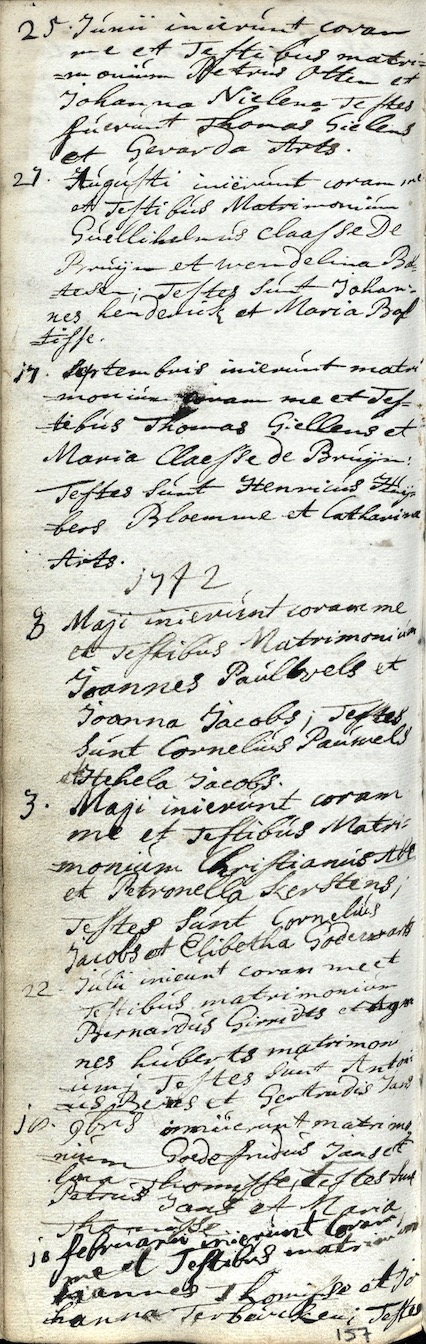 25. Junii inierunt coram
me et Testibus matri=
=monium Petrus Otten et
Johanna Nielena Testes
fuerunt Thomas Gielens
et Gerarda Arts.
27. Augusti inierunt coram me
et Testibus Matrimonium
Guellihelmus Claasse De
Bruijn et wendelina
Testes sunt Johan=
nes henderick et Maria Bas
tisse.
17. Septembris inierunt matri
monium coram me et Tes=
tibus Thomas Giellens et
Maria Claesse de Bruijn:
Testes sunt Henricus Huij
bers Bloemme et Catharina
Arts.
1742
3 Maji inierunt coram me
et Testibus Matrimonium
Joannes Paulwels et
Joanna Jacobs; Testes
sunt Cornelius Pauwels
et Jacobs.
3. Maji inierunt coram
me et Testibus Matri=
monium Christianus
et Petronella Kerstens;
Testes sunt Cornelius
Jacobs et Elibetha
22. Julii inieunt coram me et
Testibus matrimonium
Bernardus et Agne
nes huberts matrimoni
Testes sunt Antoni
us et Gertrudis Jans
10. 9bris matrimo
nium Godefridus Jans et
Thomisse, Testes sunt
Petrus Jans et Maria
Thomisse
10 februarii inierunt Coram
me et Testibus matrimonium
Joannes Thomisse et Jo
hanna Testes
157